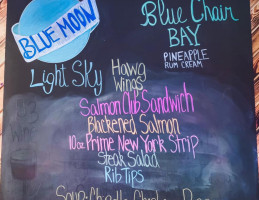 BLUE MOON
Blue Chair
BAY
PINEAPPLE
RUM CREAM
Light Sky
Hawg
Wings
Salmon Club Sandwich
Blackened Salmon
10oz Prime New York Strip
Steak Salad
Rib Tips